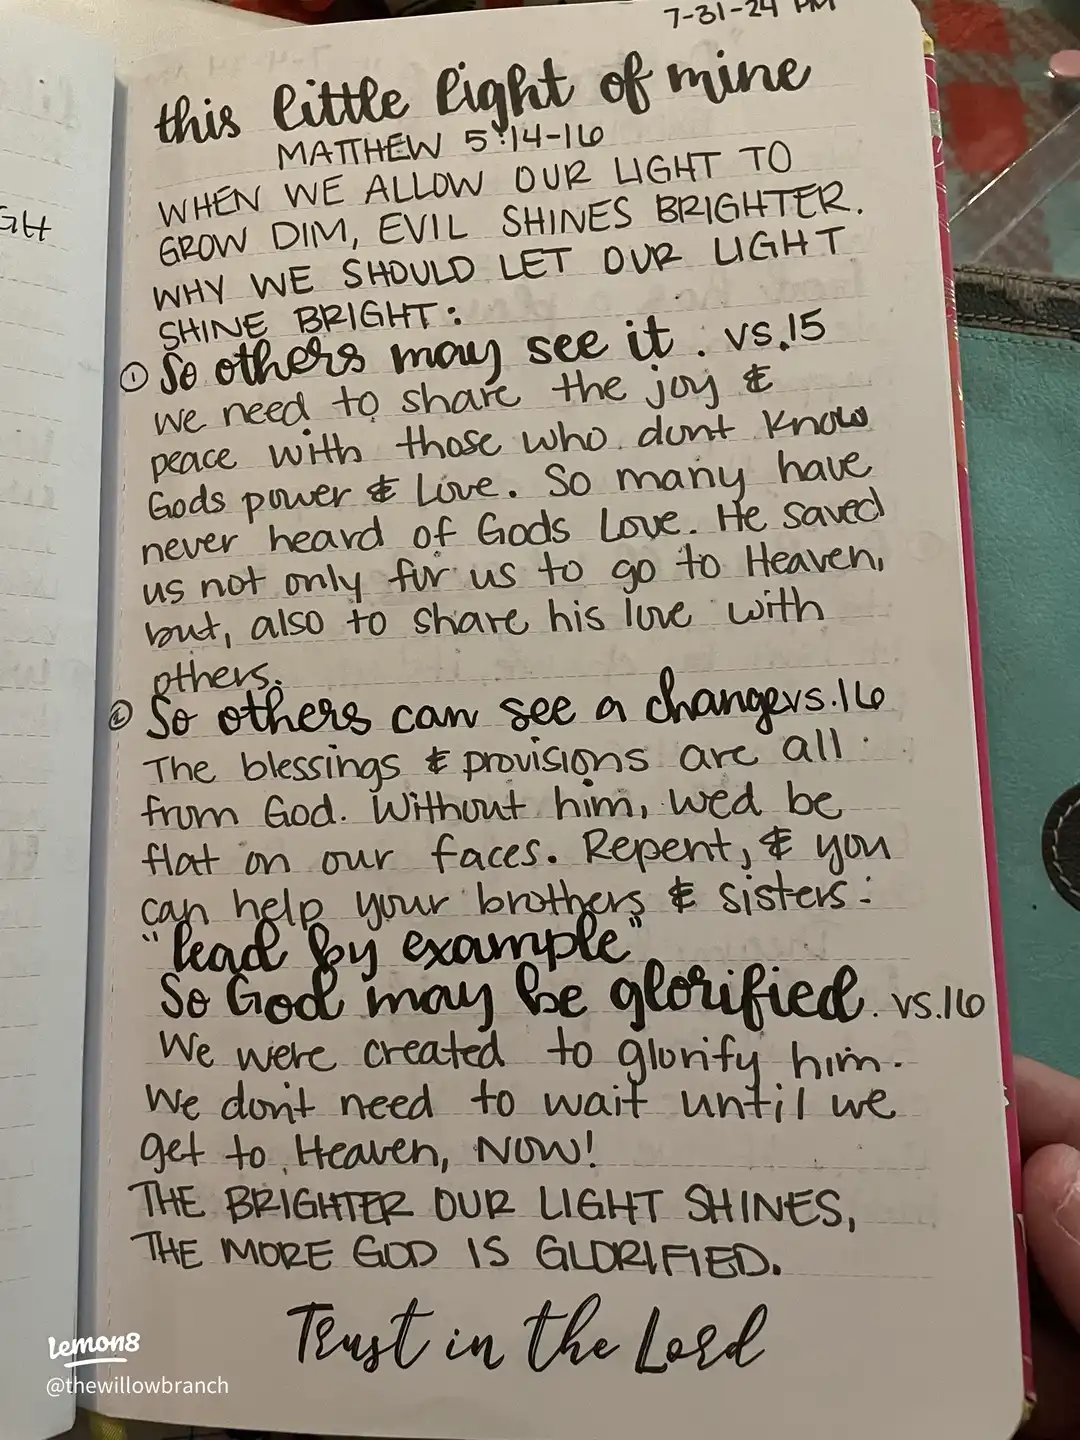 7-31-24 PM
this little light of mine
MATTHEW 5:14-16
WHEN WE ALLOW OUR LIGHT TO
GROW DIM, EVIL SHINES BRIGHTER.
WHY WE SHOULD LET OUR LIGHT
SHINE BRIGHT:
① So others may see it. vs.15
we need to share the joy &
peace with those who dont know
Gods power & Love. So many have
never heard of Gods Love. He saved
us not only for us to go to Heaven,
but, also to share his love with
others.
② So others can see a change vs.16
The blessings & provisions are all
from God. Without him, wed be
flat on our faces. Repent, & you
can help your brothers & sisters:
"lead by example"
So God may be glorified. vs.16
We were created to glorify him.
We don't need to wait until we
get to Heaven, NOW!
THE BRIGHTER OUR LIGHT SHINES,
THE MORE GOD IS GLORIFIED.
Trust in the Lord
GH
lemon8
@thewillowbranch